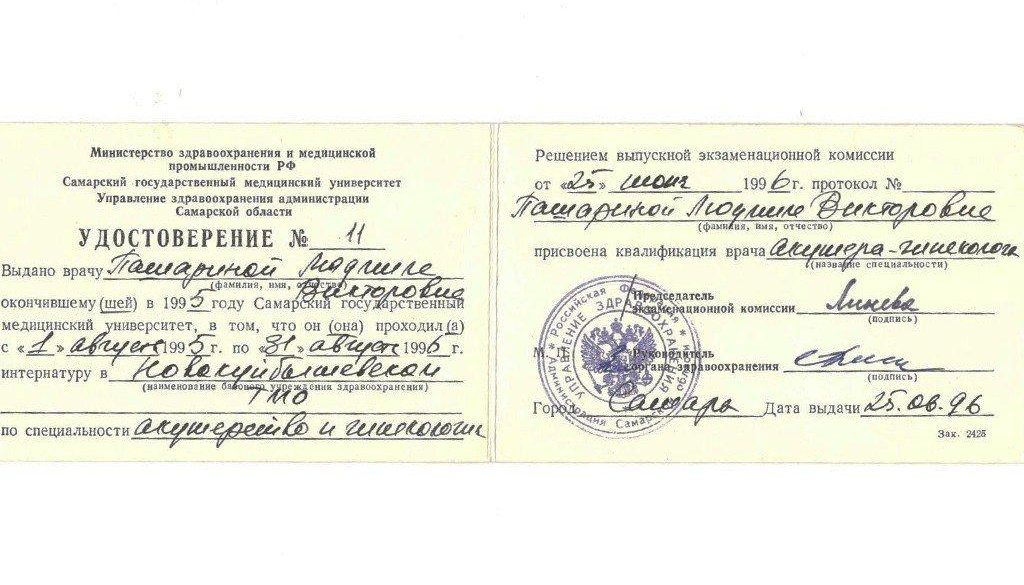 Министерство здравоохранения и медицинской
промышленности РФ
Самарский государственный медицинский университет
Управление здравоохранения администрации
Самарской области
УДОСТОВЕРЕНИЕ № 11
Выдано врачу Пашариной Людмиле
(фамилия, имя, отчество)
Викторовне
окончившему (шей) в 1995 году Самарский государственный
медицинский университет, в том, что он (она) проходил (а)
с «1» август 1995 г. по «31» август 1996 г.
интернатуру в Новокуйбышевском
(наименование базового учреждения здравоохранения)
ТМО
по специальности акушерство и гинекология
Решением выпускной экзаменационной комиссии
от «25» июня 1996 г. протокол №
Пашариной Людмиле Викторовне
(фамилия, имя, отчество)
присвоена квалификация врача акушера-гинеколога
(название специальности)
Председатель
экзаменационной комиссии Линева
(подпись)
М. П. Руководитель
органа здравоохранения
(подпись)
Город Самара Дата выдачи 25.06.96
Зак. 2425
Российская Федерация
УПРАВЛЕНИЕ ЗДРАВООХРАНЕНИЯ
Администрация Самарской